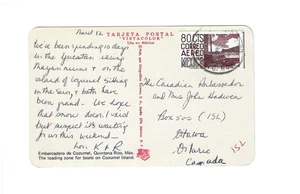 March 12
TARJETA POSTAL
"VISTACOLOR"
Hecho en México
We've been spending 10 days
in the Yucatan seeing
Mayan ruins & on the
island of Cozumel sitting
in the sun, & both have
been grand. We hope
that snow doesn't last
but suspect it's waiting
for us this weekend—
Love K & R
Embarcadero de Cozumel, Quintana Roo, Méx.
The loading zone for boats on Cozumel Island
80 CTS
CORREO
AEREO
MEXICO
The Canadian Ambassador
and Mrs John
Box 500 (ISL)
Ottawa
Ontario
Canada
ISL